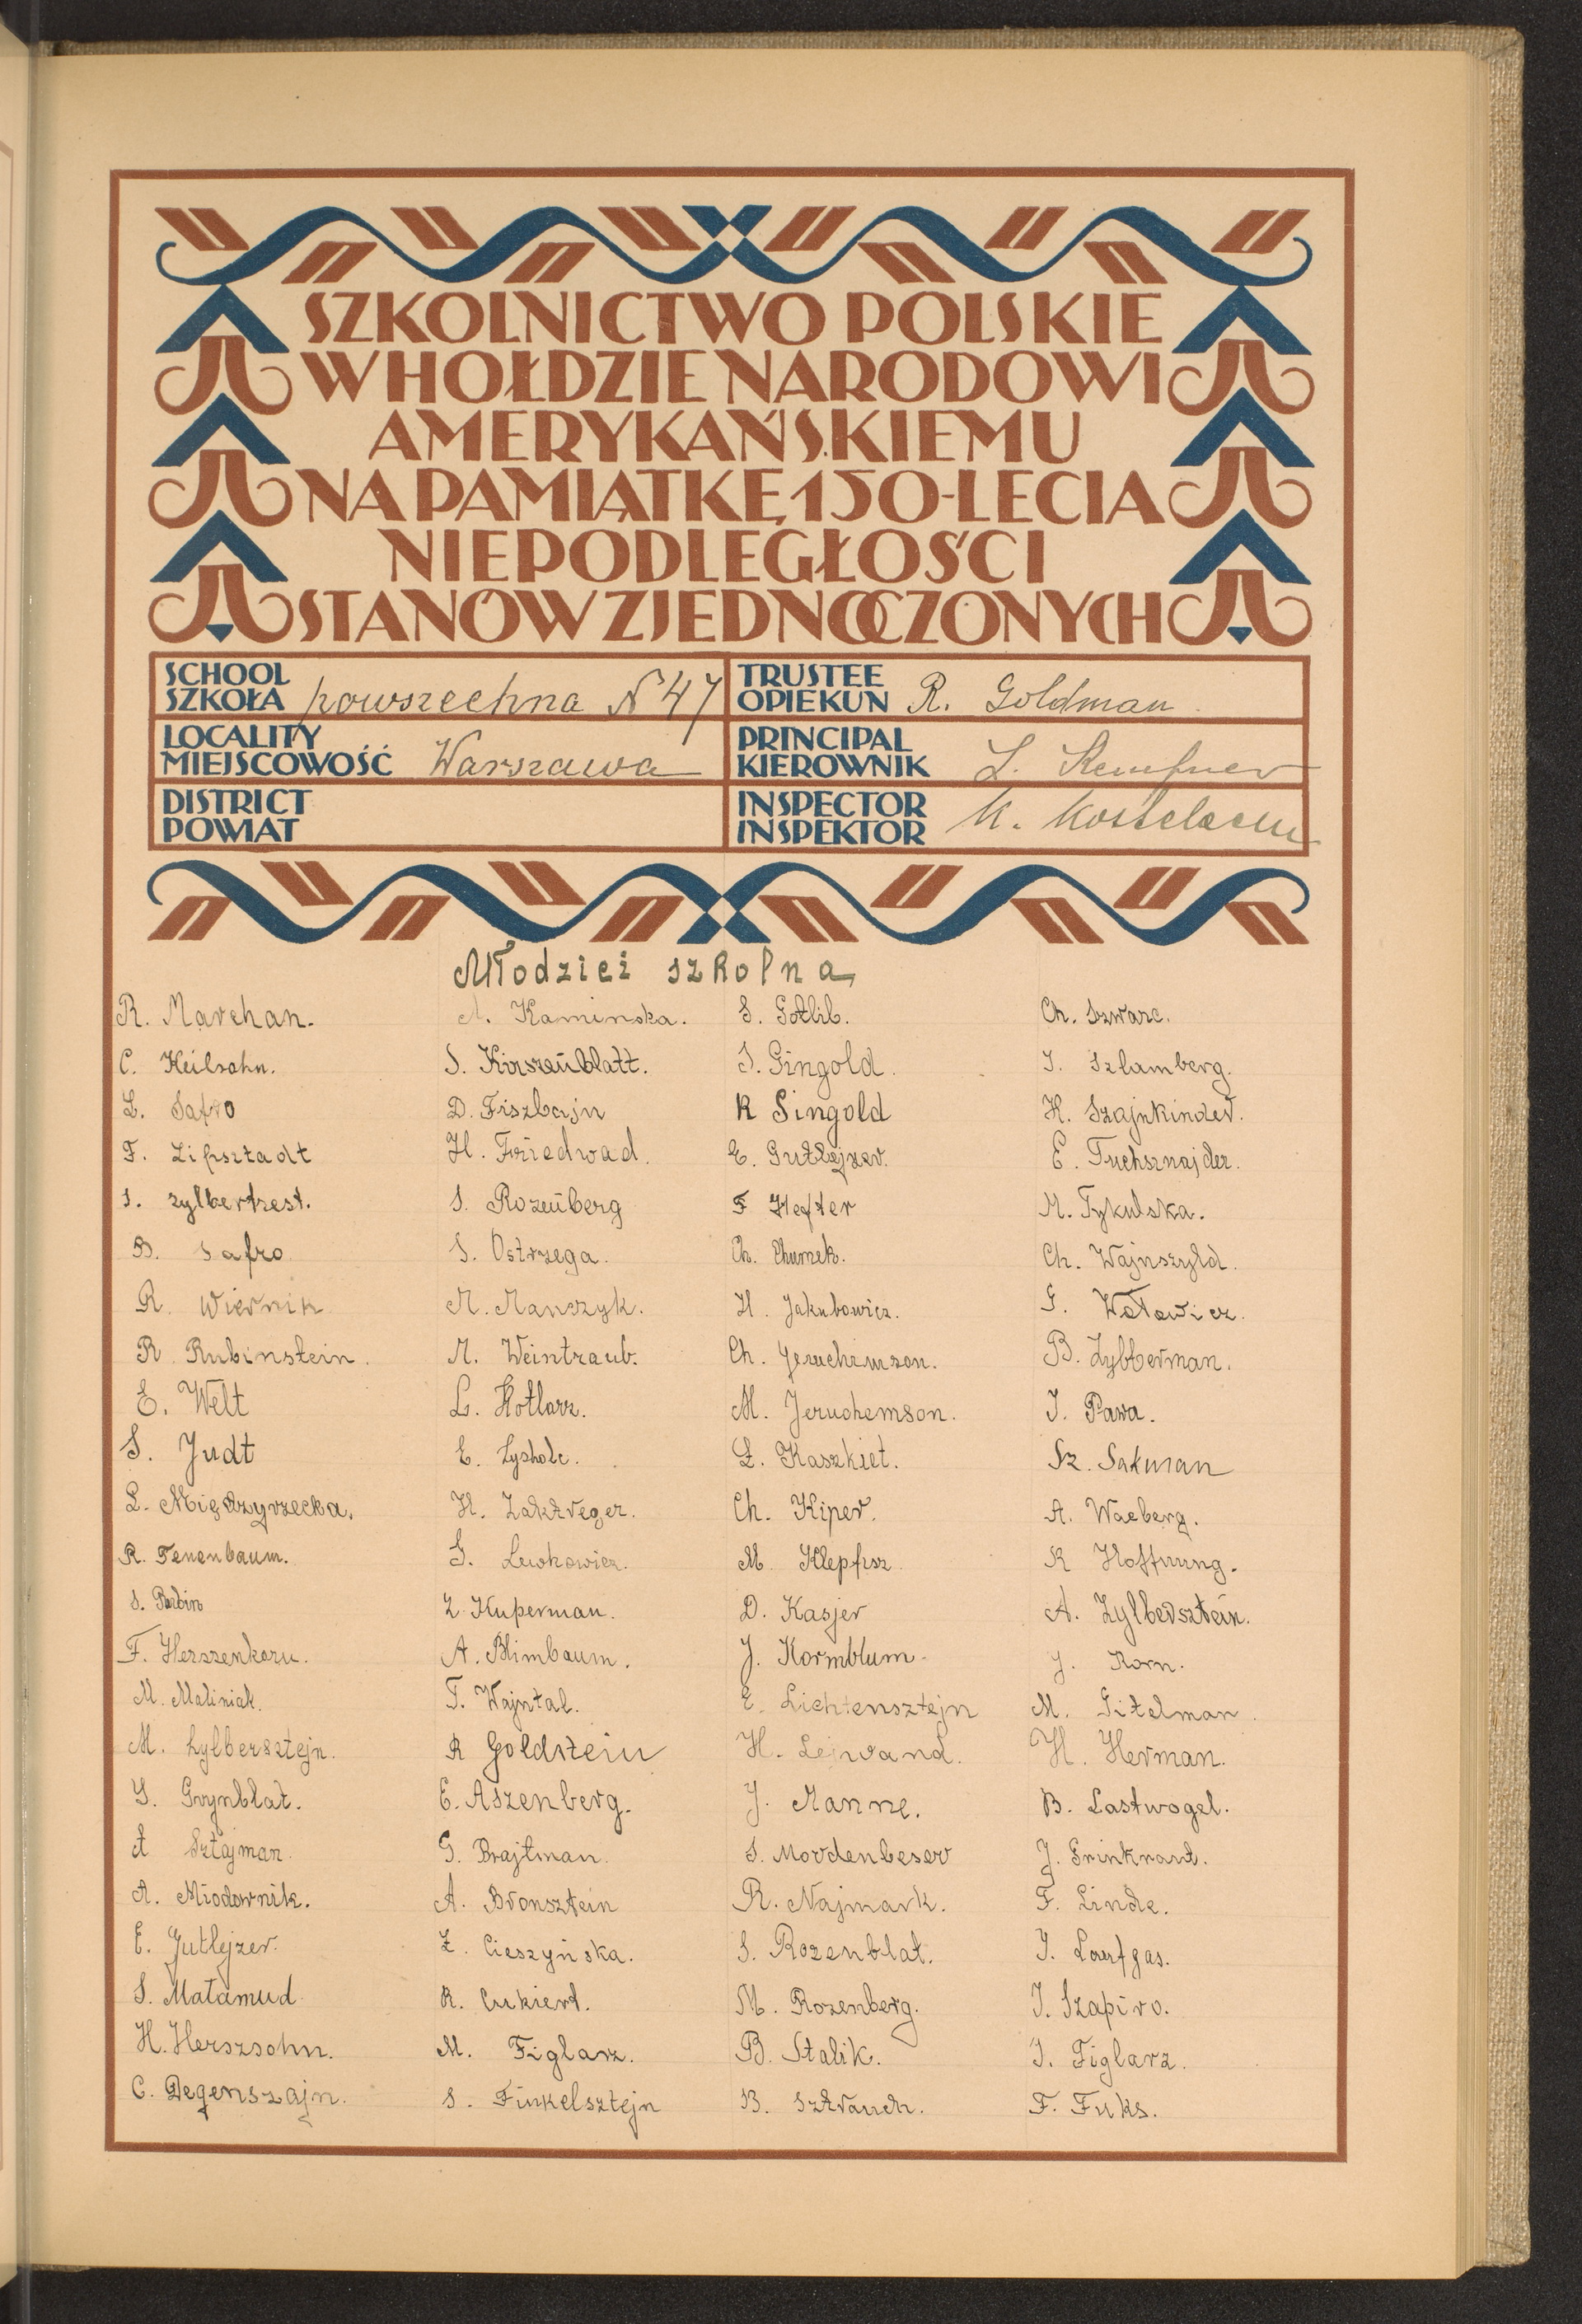 SZKOLNICTWO POLSKIE
W HOŁDZIE NARODOWI
AMERYKAŃSKIEMU
NA PAMIĄTKĘ 150-LECIA
NIEPODLEGŁOŚCI
STANÓW ZJEDNOCZONYCH
SCHOOL
SZKOŁA powszechna N 47
TRUSTEE
OPIEKUN R. Goldman
LOCALITY
MIEJSCOWOŚĆ Warszawa
PRINCIPAL
KIEROWNIK L. Kempner
DISTRICT
POWIAT
INSPECTOR
INSPEKTOR K.
Młodzież szkolna
R. Marchan.
C. Keilsohn.
L. Safro
F. Lipsztadt
S. Zylbertrest.
B. Safro
R. Wiernik
R. Rubinstein.
E. Welt
S. Judt
L. Międzyrzecka.
R. Tenenbaum.
S. Rabin
F. Herszenkorn.
M. Maliniak.
M. Zylbersztejn.
S. Grynblat.
A Sztajman.
A. Miodownik.
E. Gutlejzer.
S. Małamud
H. Herszsohn.
C. Degenszajn.
A. Kaminska.
S. Kirszenblatt.
D. Fiszbajn
H. Friedwad.
S. Rozenberg
S. Ostrzega.
M. Manszyk.
M. Weintraub.
L. Kotlarz.
E. Lysholc.
H. Zaktreger.
S. Lewkowicz.
Z. Kuperman.
A. Blimbaum.
T. Wajntal.
R Goldstein
E. Aszenberg.
G. Brajtman.
A. Bronsztein
Z. Cieszyńska.
R. Cukiert.
M. Figlarz.
S. Finkelsztejn
S. Gotlib.
S. Gingold.
R Singold
E. Gutlejzer.
F Hefter
Ch. Chumek.
H. Jakubowicz.
Ch. Jeruchemson.
M. Jeruchemson.
Ł. Kaszkiet.
Ch. Kiper.
M Klepfisz
D. Kasjer
J. Kormblum.
E. Lichtensztejn
H. Lejwand.
J. Manne.
S. Mordenbeser
R. Najmark.
S. Rozenblat.
M. Rozenberg.
B. Stalik.
B. Sztrauch.
Ch. Szwarc.
I. Szlamberg.
H. Szajnkinder.
E. Tuchsznajder.
M. Tykulska.
Ch. Wajnszyld.
G. Wołowicz.
B. Zylberman.
I. Pawa.
Sz. Sakman
A. Waeberg.
R Hoffnung.
A. Zylbersztein.
J. Korn.
M. Gitelman.
H. Herman.
B. Lastwogel.
J. Grinkraut.
F. Linde.
I. Laufgas.
I. Szapiro.
I. Figlarz.
F. Fuks.